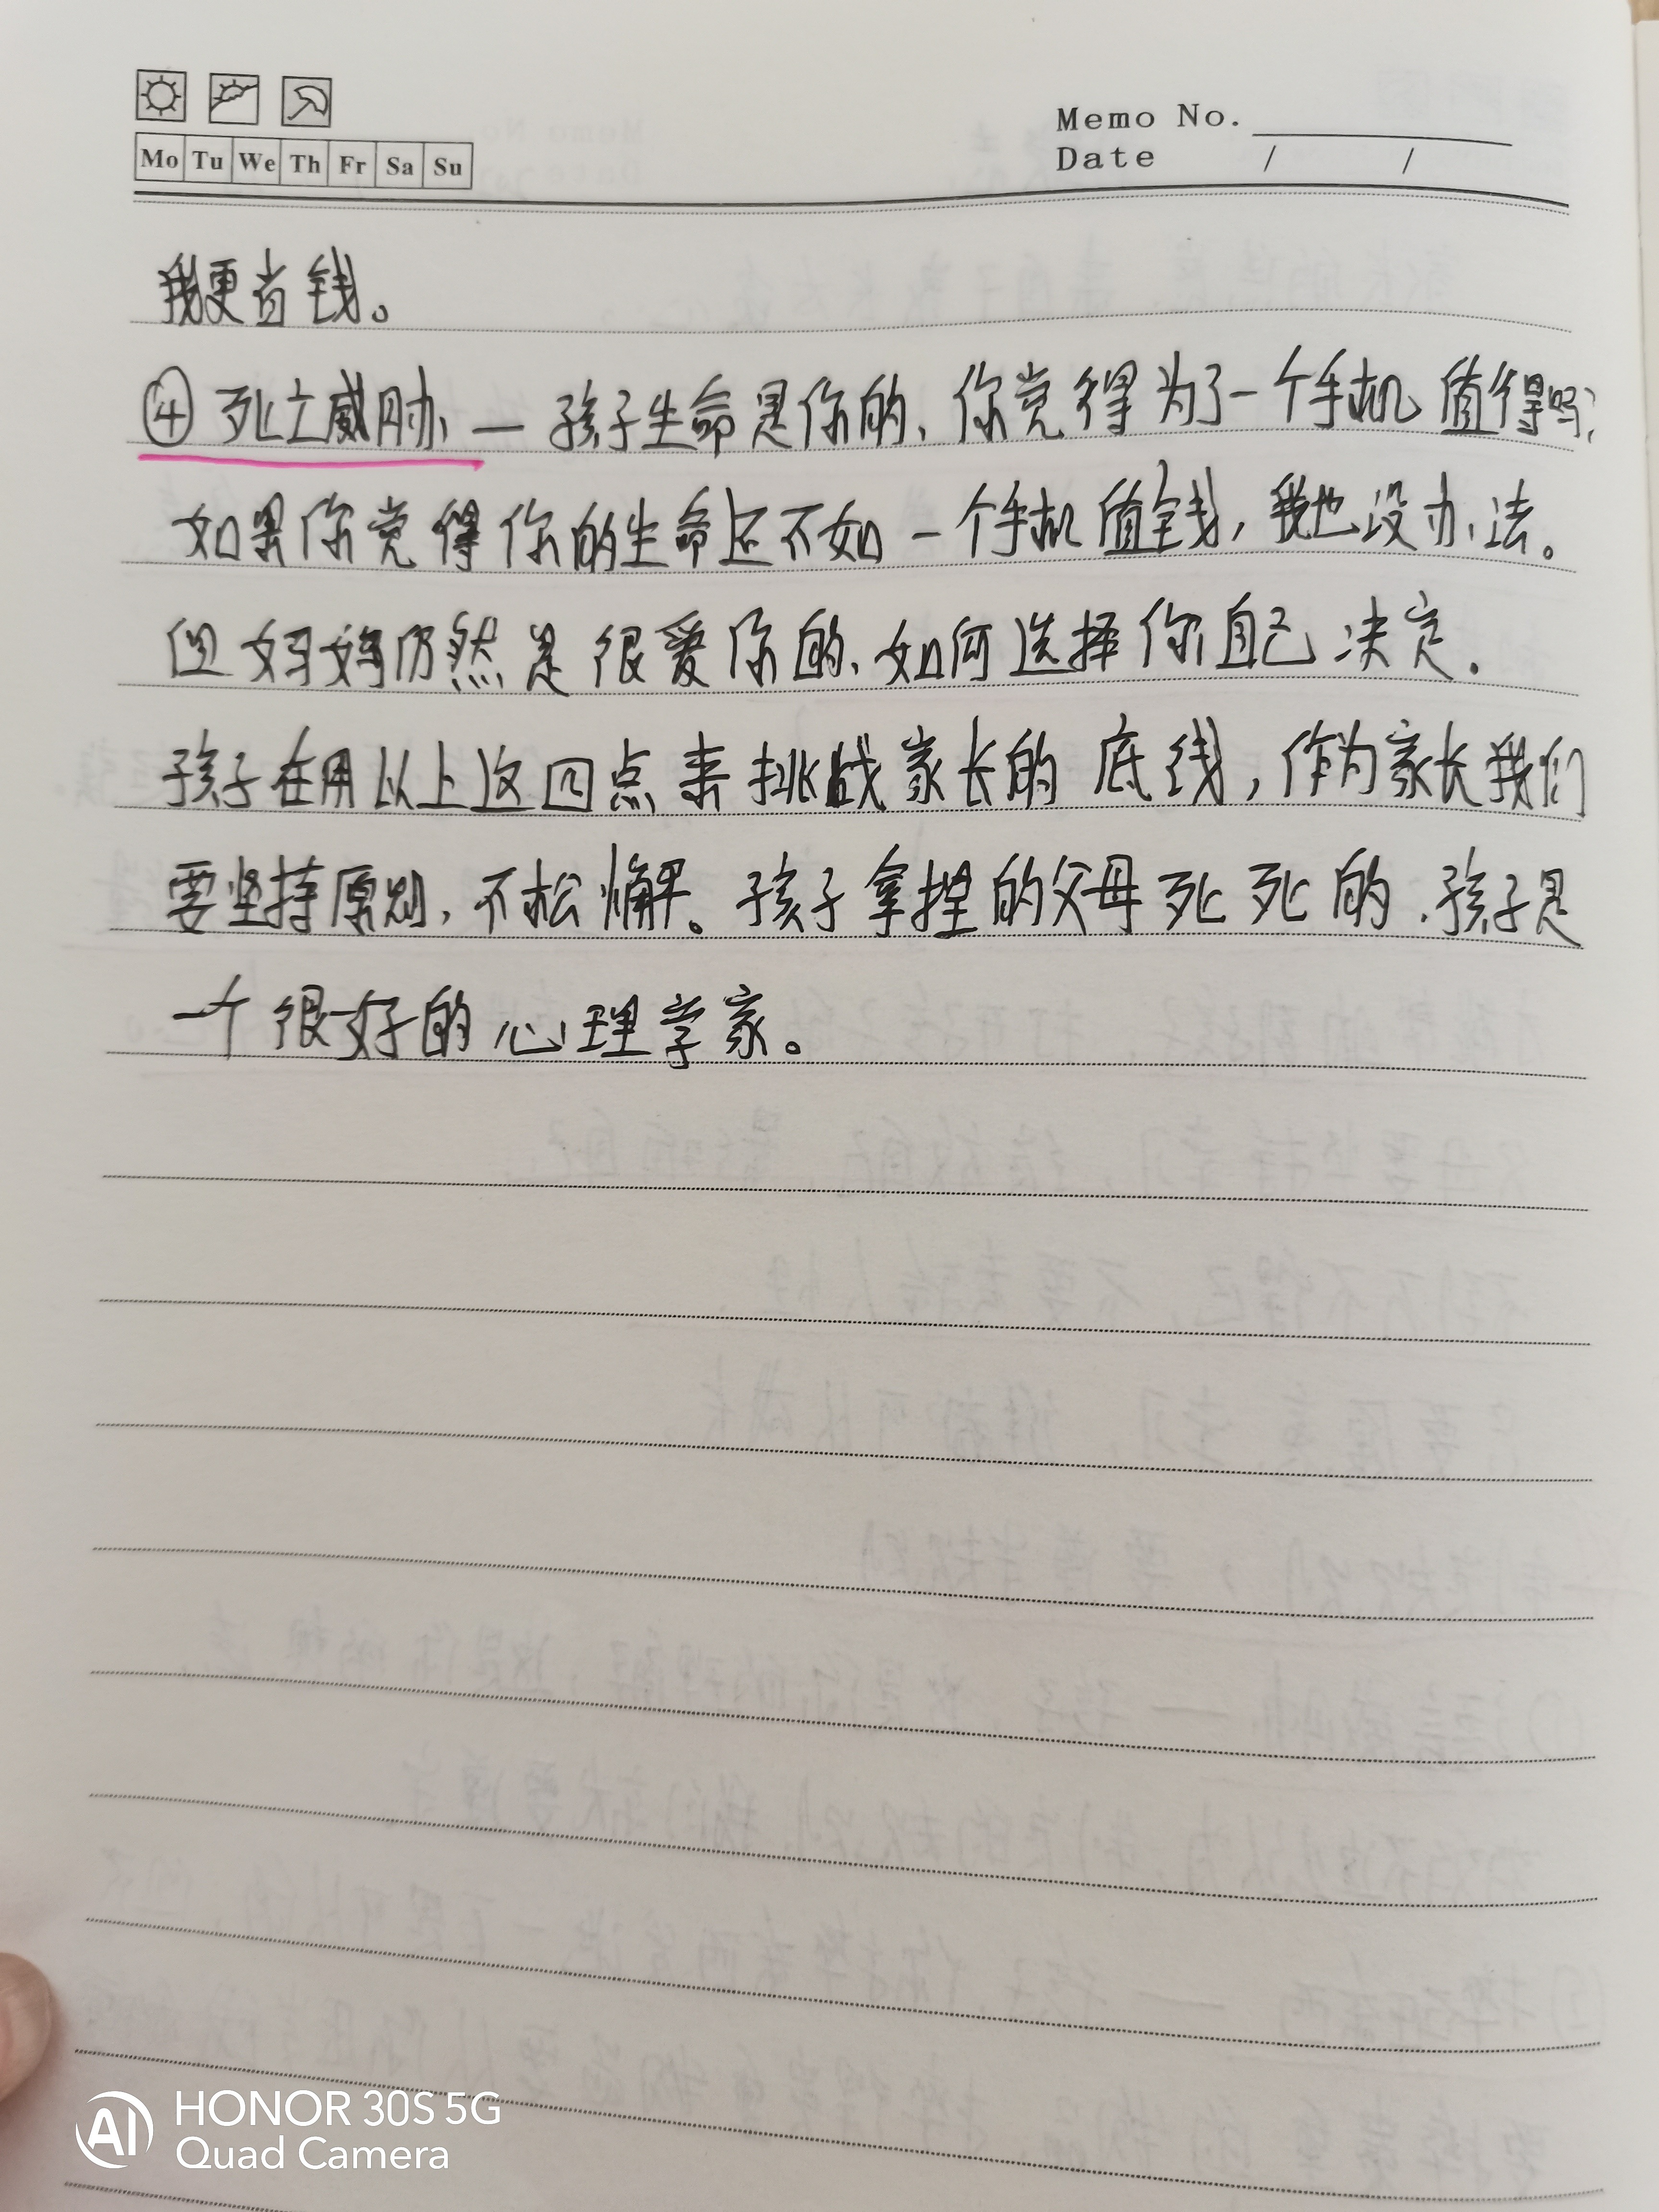 Memo No.
Mo Tu We Th Fr Sa Su
Date / /
我更省钱。
④ 死亡威胁 — 孩子生命是你的、你觉得为了一个手机值得吗?
如果你觉得你的生命还不如一个手机值钱,我也没办法。
但妈妈仍然是很爱你的、如何选择你自己决定.
孩子在用以上这四点来挑战家长的底线,作为家长我们
要坚持原则,不松懈。孩子拿捏的父母死死的.孩子是
一个很好的心理学家。
AI HONOR 30S 5G
Quad Camera